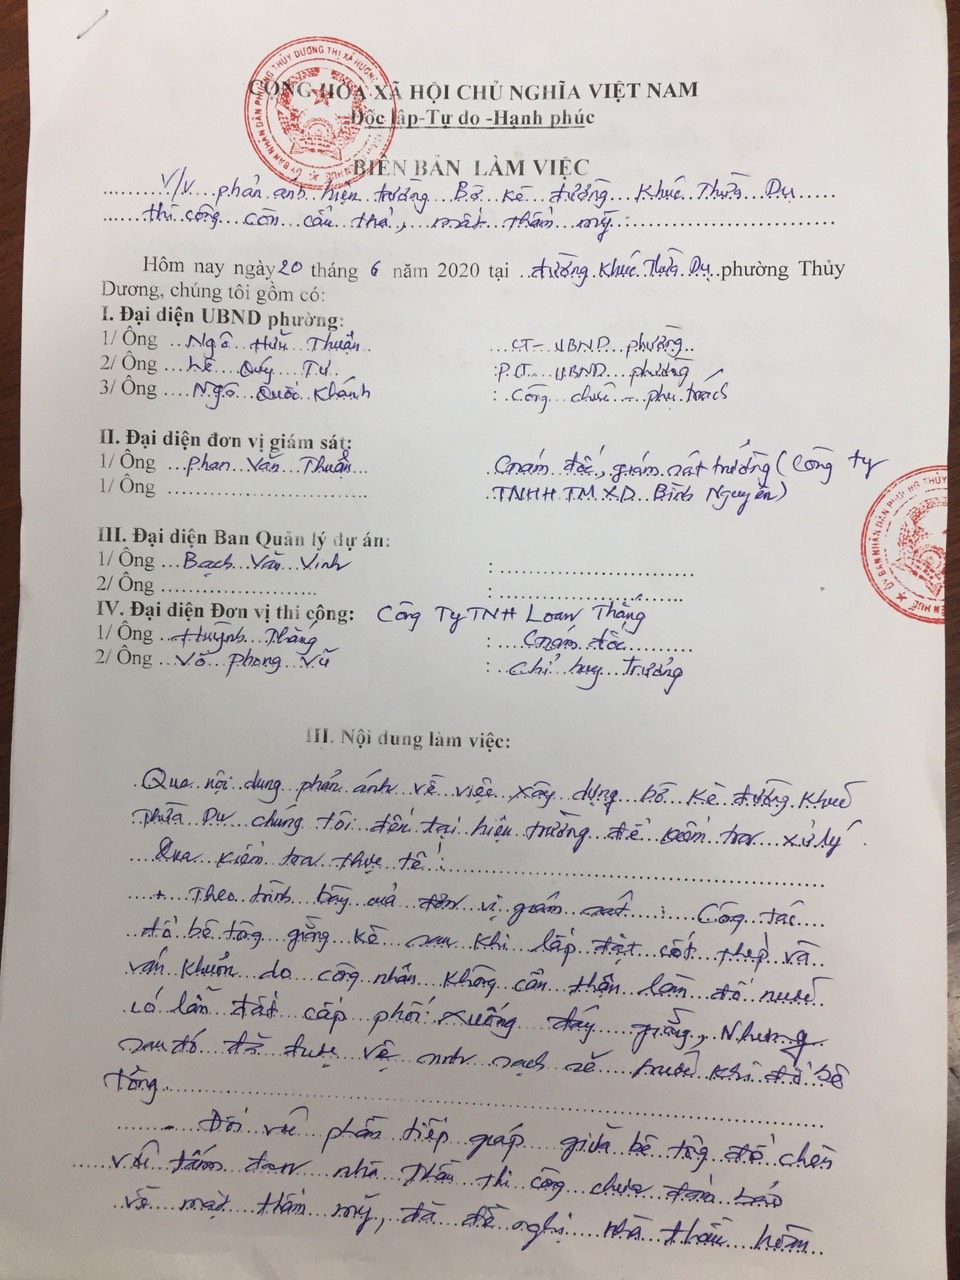 CỘNG HÒA XÃ HỘI CHỦ NGHĨA VIỆT NAM
Độc lập-Tự do -Hạnh phúc
BIÊN BẢN LÀM VIỆC
V/v phản ánh hiện trường Bờ kè đường Khúc Thừa Dụ
thi công còn cẩu thả, mất thẩm mỹ:
Hôm nay ngày 20 tháng 6 năm 2020 tại đường Khúc Thừa Dụ phường Thủy
Dương, chúng tôi gồm có:
I. Đại diện UBND phường:
1/ Ông Ngô Hữu Thuận CT-UBND phường
2/ Ông Lê Quý Tư :P.CT UBND phường
3/ Ông Ngô Quốc Khánh : Công chức - phụ trách
II. Đại diện đơn vị giám sát:
1/ Ông Phan Văn Thuận Giám đốc, giám sát trưởng (Công ty
1/ Ông TNHH TM.XD Bình Nguyên)
III. Đại diện Ban Quản lý dự án:
1/ Ông Bạch Văn Vinh :
2/ Ông :
IV. Đại diện Đơn vị thi công: Công Ty TNH Loan Thắng
1/ Ông Huỳnh Thắng : Giám đốc
2/ Ông Võ Phong Vũ : Chỉ huy trưởng
III. Nội dung làm việc:
Qua nội dung phản ánh về việc xây dựng bờ kè đường Khúc
Thừa Dụ chúng tôi đến tại hiện trường để kiểm tra xử lý
Qua kiểm tra thực tế:
+ Theo trình bày của đơn vị giám sát : Công tác
đổ bê tông giằng kè sau khi lắp đặt cốt thép và
ván khuôn do công nhân không cẩn thận làm đổ nước
có lẫn đất cấp phối xuống đáy giằng, Nhưng
sau đó đã được vệ sinh sạch sẽ trước khi đổ bê
tông
- Đối với phần tiếp giáp giữa bê tông đổ chèn
với tấm đan nhà thầu thi công chưa đảm bảo
về mặt thẩm mỹ, đã đề nghị nhà thầu hôm